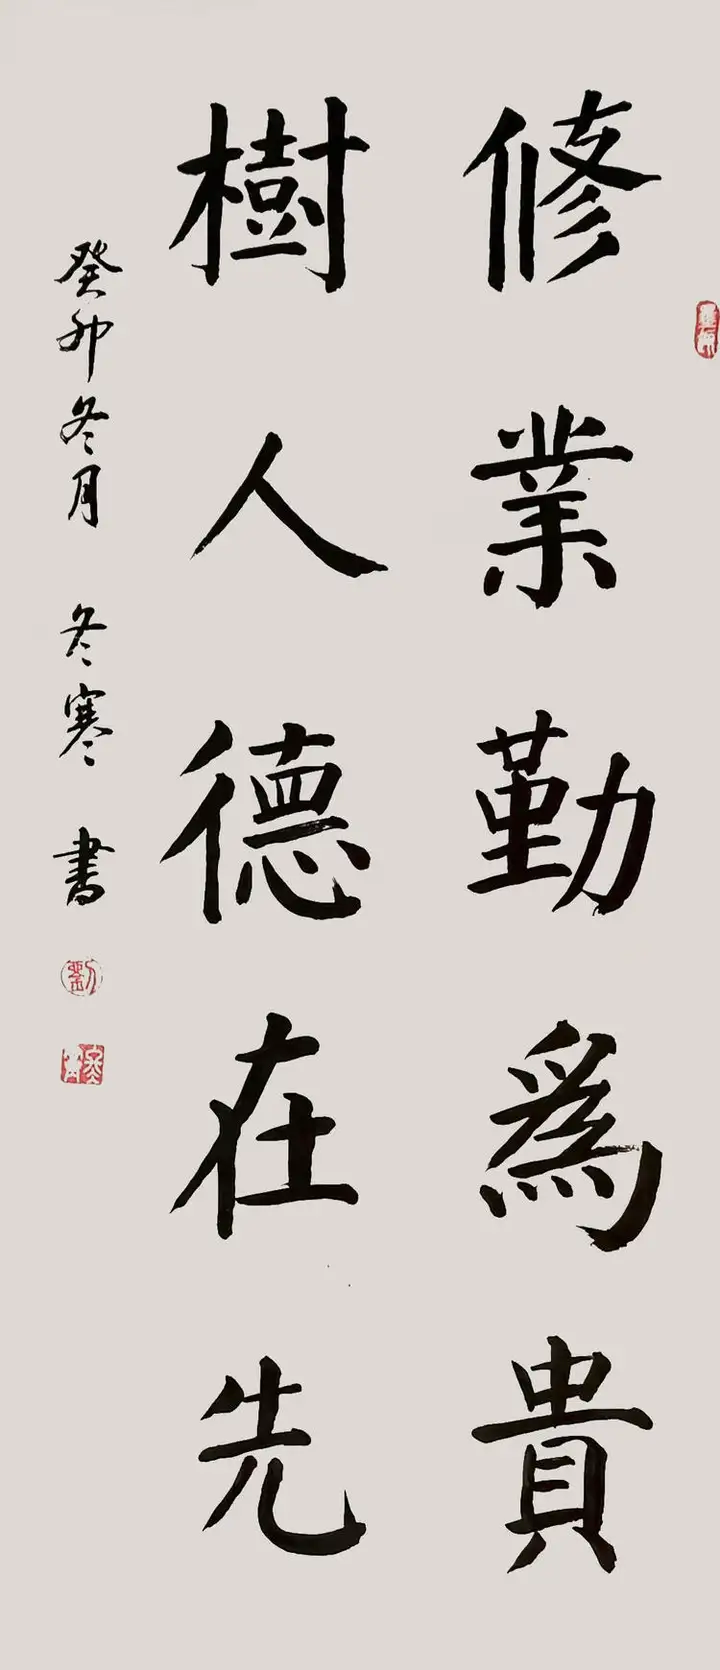 修業勤為貴
樹人德在先
癸卯冬月 冬寒 書
劉